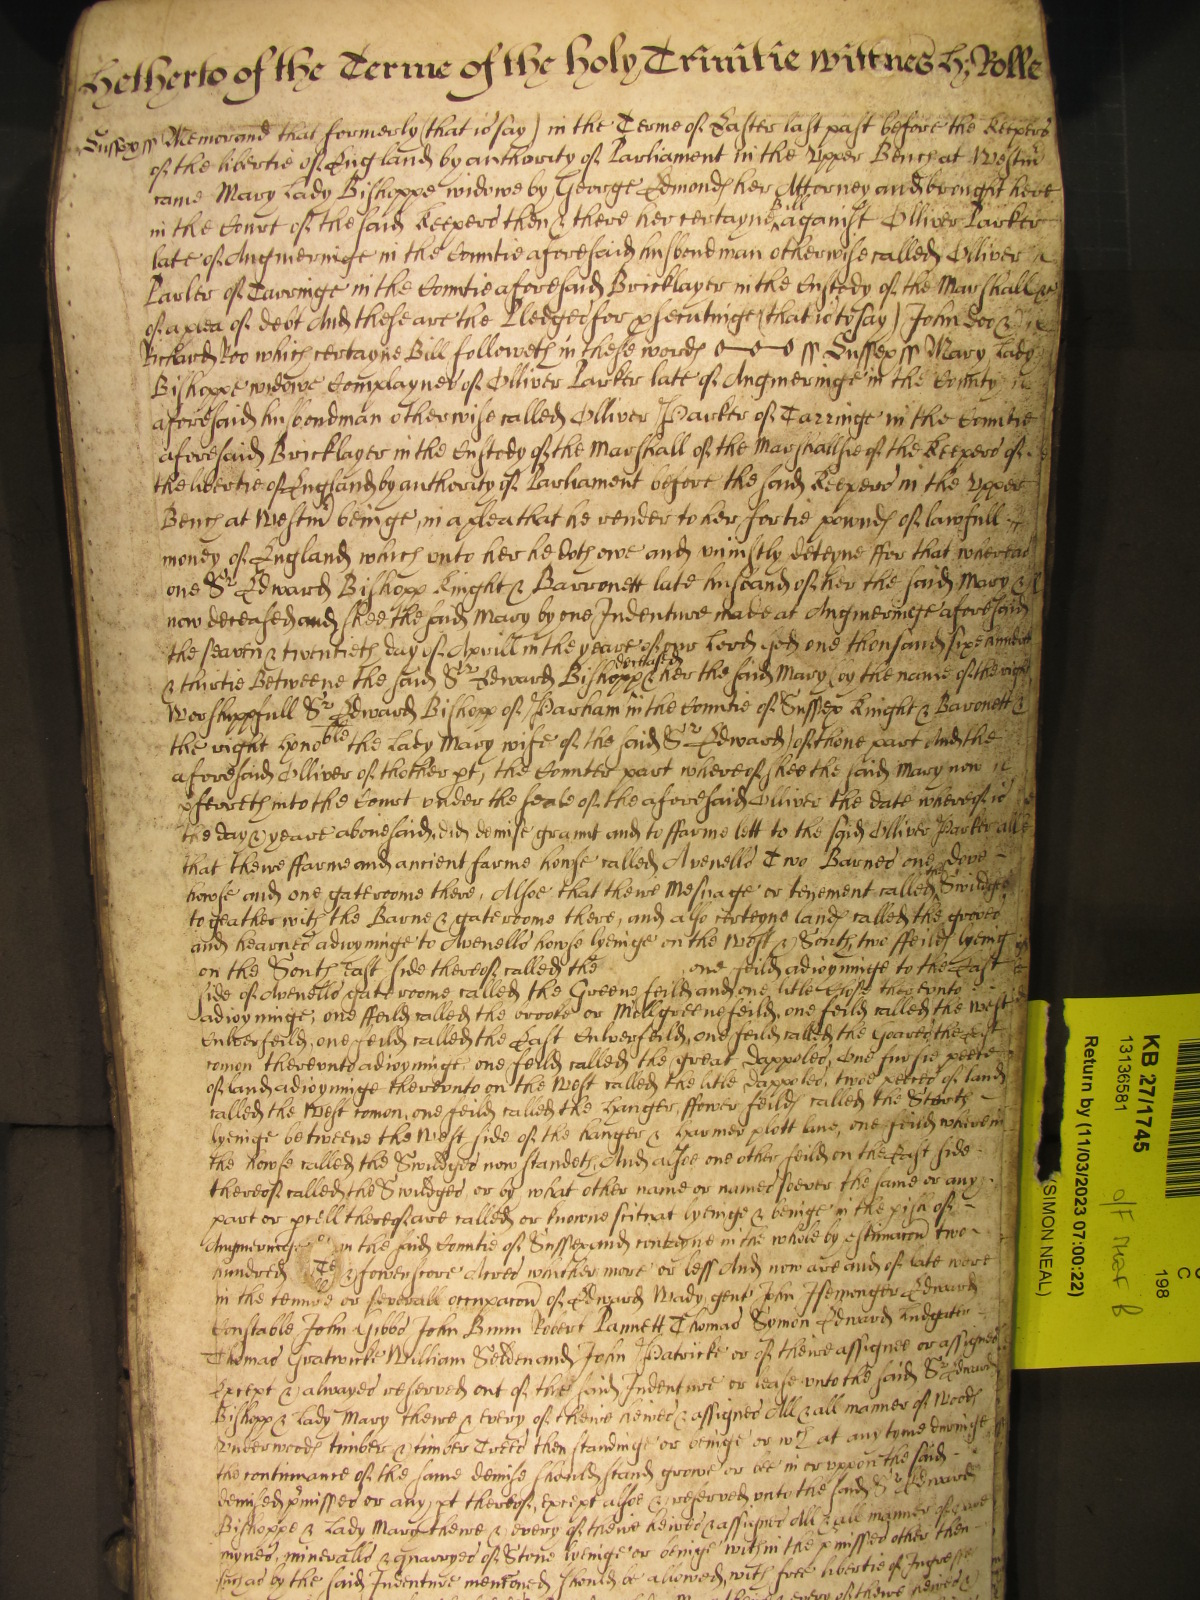 Hetherto of the Terme of the holy Trinitie wittnes H: Rolle
Sussex ss Memorand that formerly (that is to say) in the Terme of Easter last past before the Keepers
of the libertie of England by authority of Parliament in the Upper Bench at Westm
came Mary Lady Bishoppe widowe by George Edmonds her Attorney and brought here
in the Court of the said Keepers then & there her certayne Bill against Olliver Parker
late of Angmeringe in the Countie aforesaid husbondman otherwise called Olliver
Parker of Tarringe in the Countie aforesaid Bricklayer in the Custody of the Marshall &c
of a plea of debt And these are the Pledges for psecutinge (that is to say) John Doo &
Richard Roo which certayne Bill followeth in these words ss Sussex ss Mary Lady
Bishoppe widowe Complaynes of Olliver Parker late of Angmeringe in the County
aforesaid husbondman otherwise called Olliver Parker of Tarringe in the Countie
aforesaid Bricklayer in the Custody of the Marshall of the Marshallsie of the Keepers of
the libertie of England by authority of Parliament before the said Keepers in the Upper
Bench at Westm beinge, in a plea that he render to her fortie pownds of lawfull
money of England which unto her he doth owe and uniustly deteyne ffor that whereas
one Sr Edward Bishopp Knight & Barronett late husband of her the said Mary &
now deceased and shee the said Mary by one Indenture made at Angmeringe aforesaid
the seaven & twentieth day of Aprill in the yeare of our Lord god one thousand sixe hundred
& thirtie Betweene the said Sr Edward Bishopp deceased & her the said Mary (by the name of the right
Worshippfull Sr Edward Bishopp of Parham in the Countie of Sussex Knight & Baronett &
the right honoble the Lady Mary wife of the said Sr Edward) of thone part And the
aforesaid Olliver of thother pt, the Counter part whereof shee the said Mary now
pferreth into the Court under the seale of the aforesaid Olliver the date whereof is
the day & yeare abovesaid, did demise graunt and to ffarme lett to the said Olliver Parker all
that theire ffarme and ancient farme house called Avenells Two Barnes one dove
howse and one gateroome there, Alsoe that theire Mesuage or tenement called the Swidges
togeather with the Barne & gateroome there, and also certeyne lands called the groves
and hearnes adioyninge to Avenells howse lyeinge on the West & South, two ffeilds lyeing
on the South East side thereof called the one feild adioyninge to the East
side of Avenells gateroome called the Greene feild and one litle Close thereunto
adioyninge, one ffeild called the brooke or Millgreenefeild, one feild called the West
Culverfeild, one feild called the East Culverfeild, one feild called the Goares, the East
comon thereunto adioyninge, one feild called the great Dappoles, One fursie peece
of land adioyninge thereunto on the West called the litle Dappoles, twoe peeces of land
called the West comon, one feild called the hanger, ffower feilds called the Sterts
lyeinge betweene the West side of the hanger & Harmes plott lane, one feild wherein
the howse called the Swidges now standeth, And alsoe one other feild on the East side
thereof called the Swidges, or by what other name or names soever the same or any
part or pcell thereof are called or knowne scituat lyeinge & beinge in the pish of
Angmeringe in the said Countie of Sussex and conteyne in the whole by estimacon two
hundred & fowerscore Acres whether more or less And now are and of late were
in the tenure or severall occupacon of Edward Wady, gent John Isemonger Edward
Constable John Gibbs John Binn Robert Pannett Thomas Symon Edward
Thomas Gratwicke William Selden and John Patricke or of theire assignee or assignes
Except & alwayes reserved out of the said Indenture or lease unto the said Sr Edward
Bishopp & Lady Mary theire & every of theire heires & assignes All & all manner of Woods
Underwoods timber & timber Trees then standinge or beinge or wch at any tyme duringe
the continuance of the same demise should stand growe or bee in or uppon the said
demised pmisses or any pt thereof, except alsoe & reserved unto the said Sr Edward
Bishoppe & Lady Mary theire & every of theire heires & assignes All & all manner of
mynes, mineralls & quarryes of Stone lyeinge or beinge within the pmisses other then
such as by the said Indenture mencioned should be allowed, with free libertie of Ingresse
KB 27/1745
13136581
Return by (11/03/2023 07:00:22)
(SIMON NEAL)
198
C